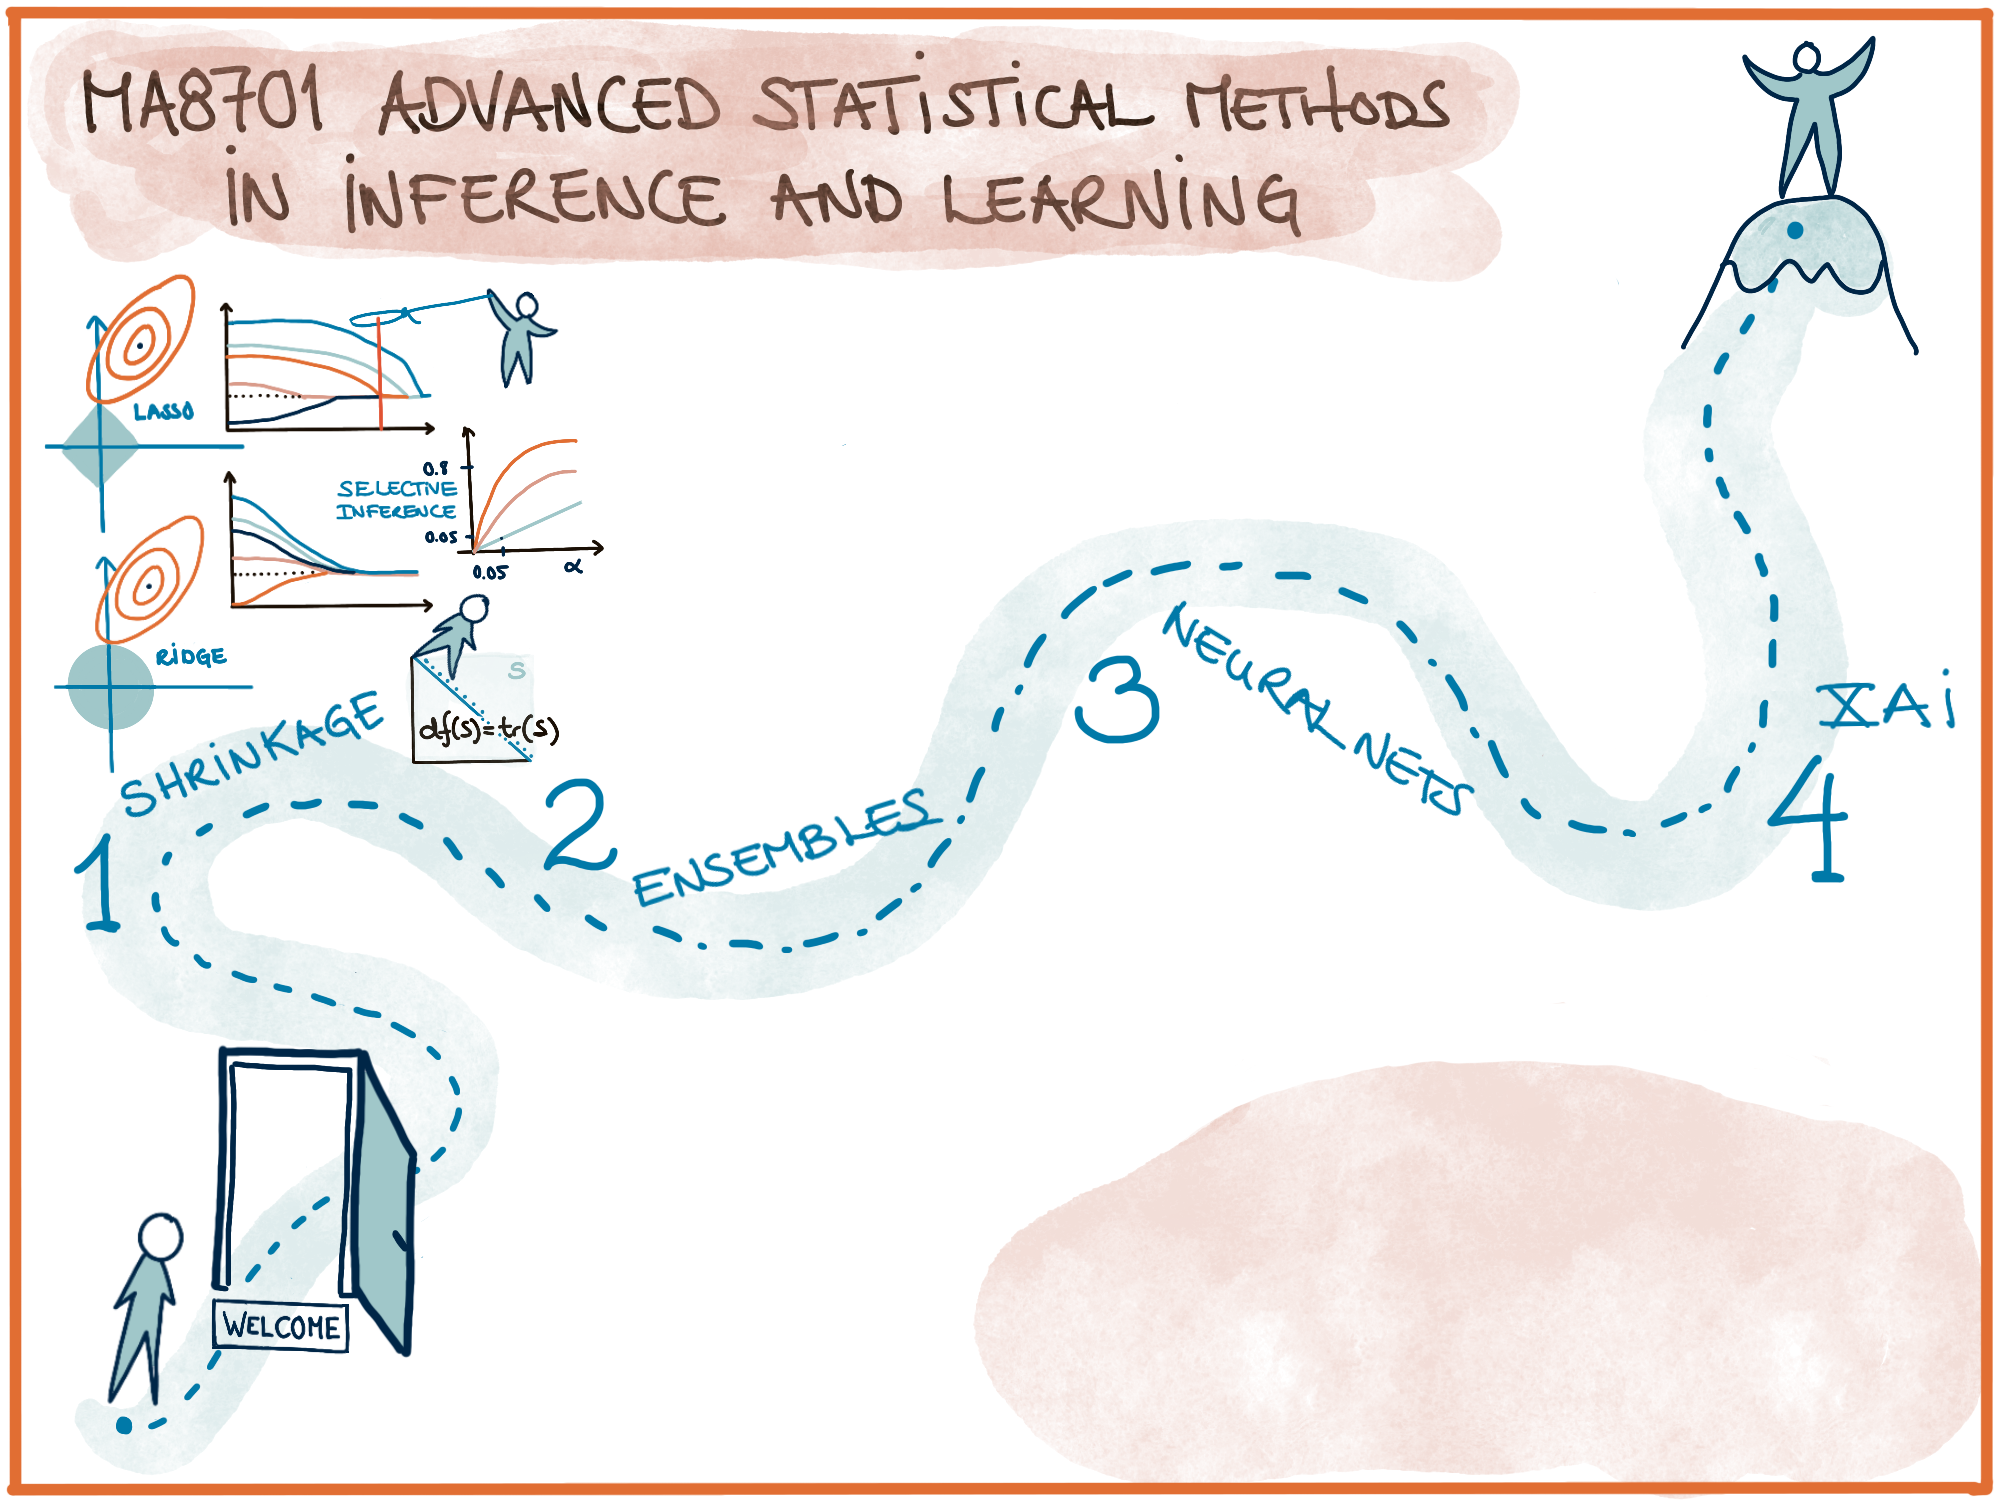 MA8701 ADVANCED STATiSTiCAL METHODS
iN iNFERENCE AND LEARNiNG
LASSO
0.8
SELECTIVE
INFERENCE
0.05
0.05
α
RiDGE
S
df(S)=tr(S)
SHRiNKAGE
1
2
ENSEMBLES
3
NEURAL NETS
XAi
4
WELCOME